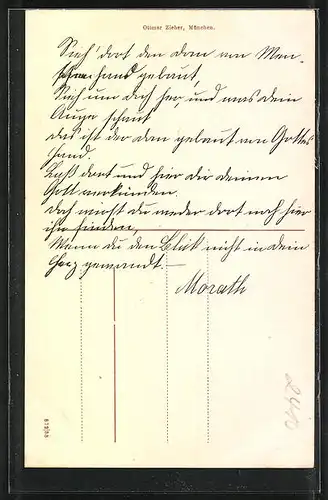 Ottmar Zieher, München.
Sieh' dort den dom von Men-
schenhand gebaut,
Sieh um dich her, und was dein
Auge schaut
das ist der dom gebaut von Gottes
Hand.
Laß dort und hier dir deinen
Gott verkünden.
doch wirst du weder dort noch hier
ihn finden,
Wenn du den Blick nicht in dein
Herz gewandt.—
Morath